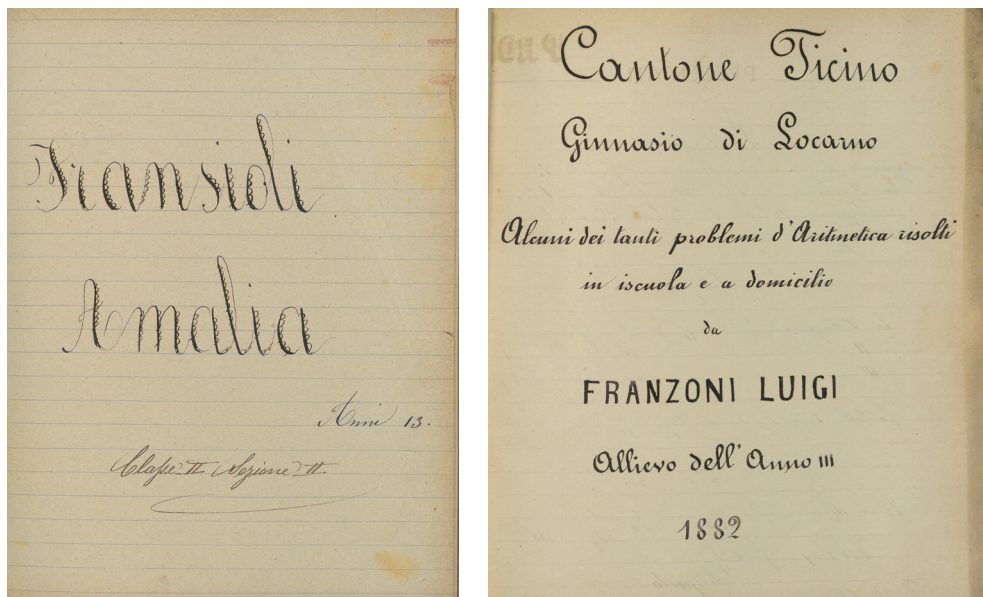 Fransioli
Amalia
Anni 13.
Classe II Sezione II.
Cantone Ticino
Ginnasio di Locarno
Alcuni dei tanti problemi d'Aritmetica risolti
in iscuola e a domicilio
da
FRANZONI LUIGI
Allievo dell'Anno III
1882